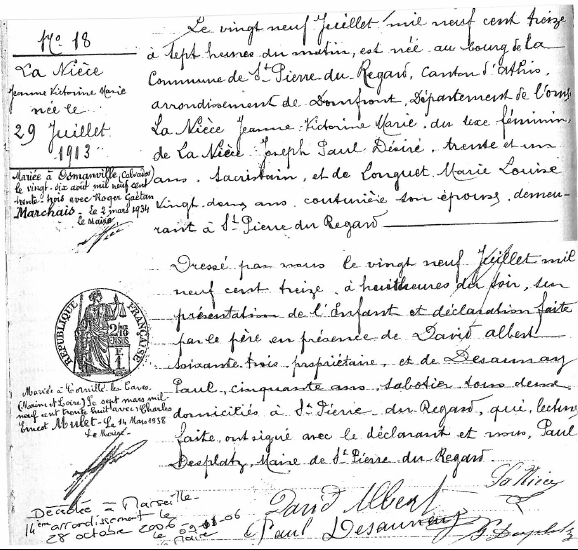 No 18
La Nièce
Jeanne Victorine Marie
née le
29 Juillet
1913
Mariée à Osmanville, (Calvados)
le vingt-six août mil neuf cent
trente-trois avec Roger Gaëtan
Marchais - le 2 mars 1934
le Maire
RÉPUBLIQUE FRANÇAISE
Mariée à Corville les Caves
(Maine et Loire) le sept mars mil
neuf cent trente huit avec Charles
Ernest Mulet - Le 14 Mars 1938
Le Maire
Décédée à Marseille
14ème arrondissement le
28 octobre 2006
le Maire
Le vingt neuf Juillet mil neuf cent treize
à sept heures du matin, est née au bourg de la
Commune de St Pierre du Regard, Canton d'Athis,
arrondissement de Domfront, Département de l'orne
La Nièce Jeanne Victorine Marie, du sexe féminin,
de La Nièce Joseph Paul Désiré, trente et un
ans, Sacristain, et de Longuet Marie Louise
Vingt deux ans, couturière son épouse, demeu-
rant à St Pierre du Regard
Dressé par nous le vingt neuf Juillet mil
neuf cent treize, à huit heures du soir, sur
présentation de l'Enfant et déclaration faite
par le père en présence de David Albert
soixante trois, propriétaire, et de Desaunay
Paul, cinquante ans, sabotier tous deux
domiciliés à St Pierre du Regard, qui, lecture
faite, ont signé avec le déclarant et nous, Paul
Desplatz, Maire de St Pierre du Regard.
La Nièce
David Albert
Paul Desaunay
P. Desplatz